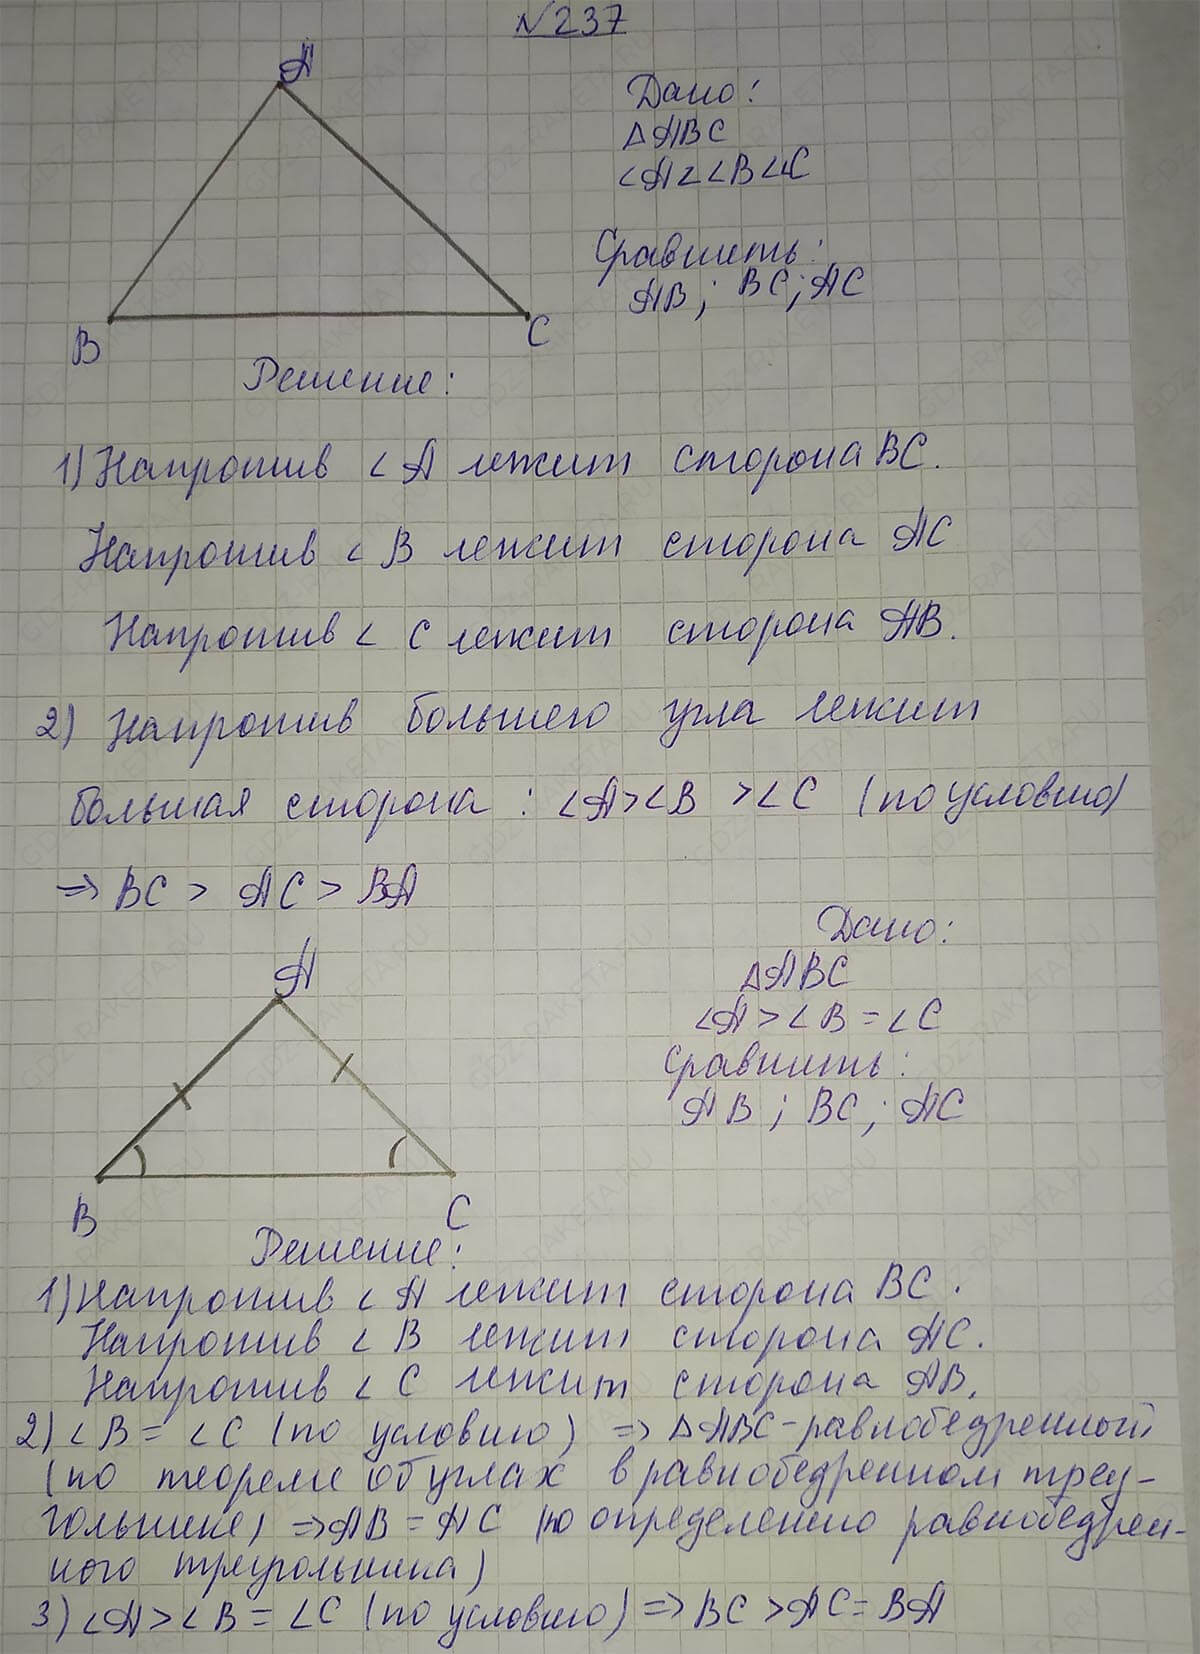 №237
A
Дано:
△ABC
∠A<∠B<∠C
Сравнить:
AB; BC; AC
B
C
Решение:
1) Напротив ∠A лежит сторона BC.
Напротив ∠B лежит сторона AC
Напротив ∠C лежит сторона AB.
2) Напротив большего угла лежит
большая сторона: ∠A>∠B >∠C (по условию)
=> BC > AC > BA
Дано:
△ABC
∠A>∠B=∠C
Сравнить:
AB; BC; AC
A
B
C
Решение:
1) Напротив ∠A лежит сторона BC.
Напротив ∠B лежит сторона AC.
Напротив ∠C лежит сторона AB.
2) ∠B=∠C (по условию) => △ABC-равнобедренный
(по теореме об углах в равнобедренном треу-
гольнике) => AB=AC (по определению равнобедрен-
ного треугольника)
3) ∠A>∠B=∠C (по условию) => BC>AC=BA